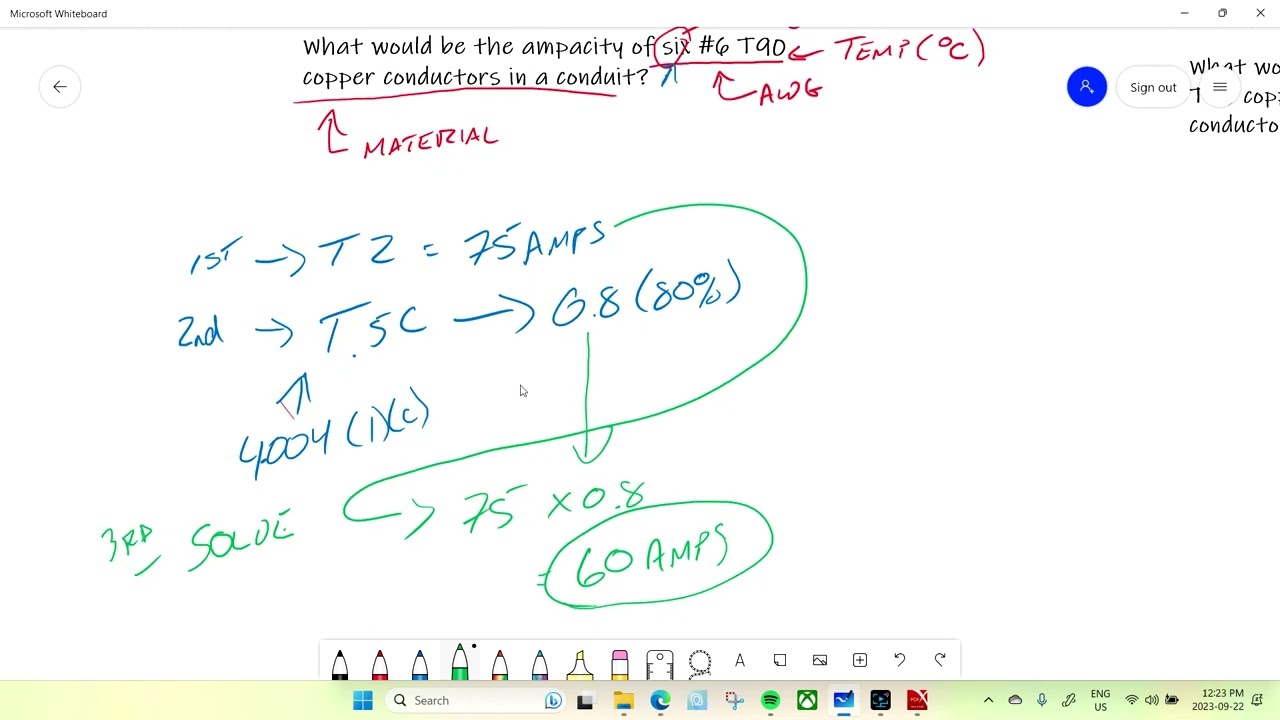 Microsoft Whiteboard
What would be the ampacity of six #6 T90 ← TEMP (°C)
copper conductors in a conduit?
AWG
MATERIAL
Sign out
What wo
cop
conducto
1ST → T2 = 75 AMPS
2nd → T.5C → 0.8 (80%)
4.004 (1)(c)
3RD SOLVE → 75 × 0.8
= 60 AMPS
A
Search
ENG
US
12:23 PM
2023-09-22